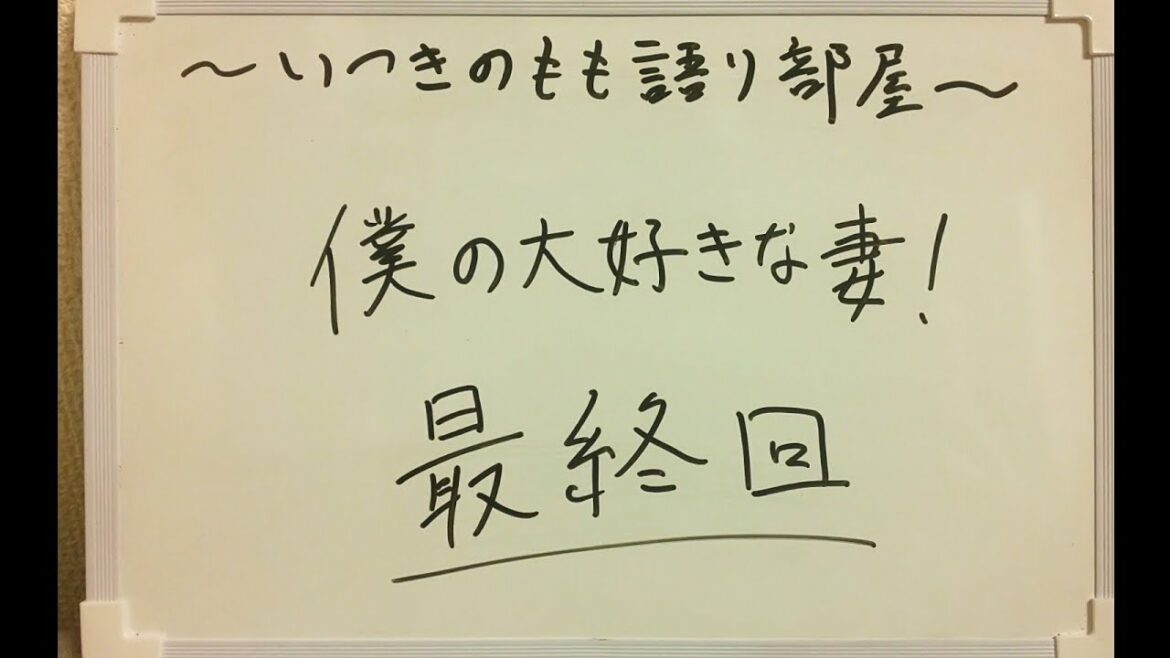 ～いつきのもも語り部屋～
僕の大好きな妻！
最終回